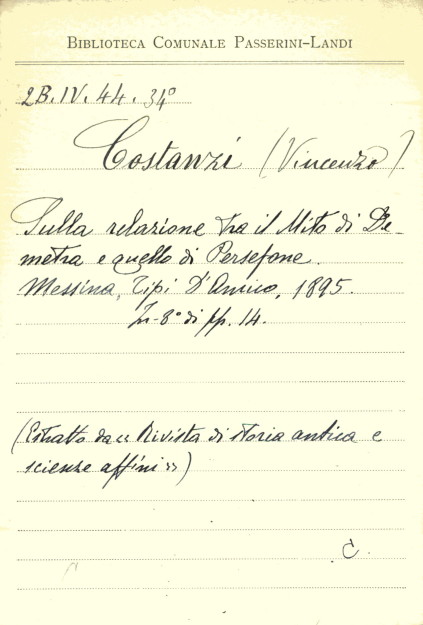 BIBLIOTECA COMUNALE PASSERINI-LANDI
2B. IV. 44. 34°
Costanzi (Vincenzo)
Sulla relazione tra il Mito di De-
metra e quello di Persefone.
Messina, Tipi D'Amico, 1895.
In-8° di pp. 14.
(Estratto da « Rivista di storia antica e
scienze affini »)
C.